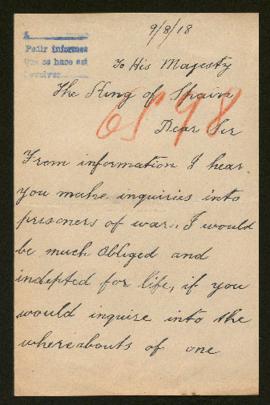 9/8/18
A
Pedir informes
que se hace así
To His Majesty
The King of Spain
6598
Dear Sir
From information I hear
you make inquiries into
prisoners of war. I would
be much obliged and
indepted for life, if you
would inquire into the
whereabouts of one